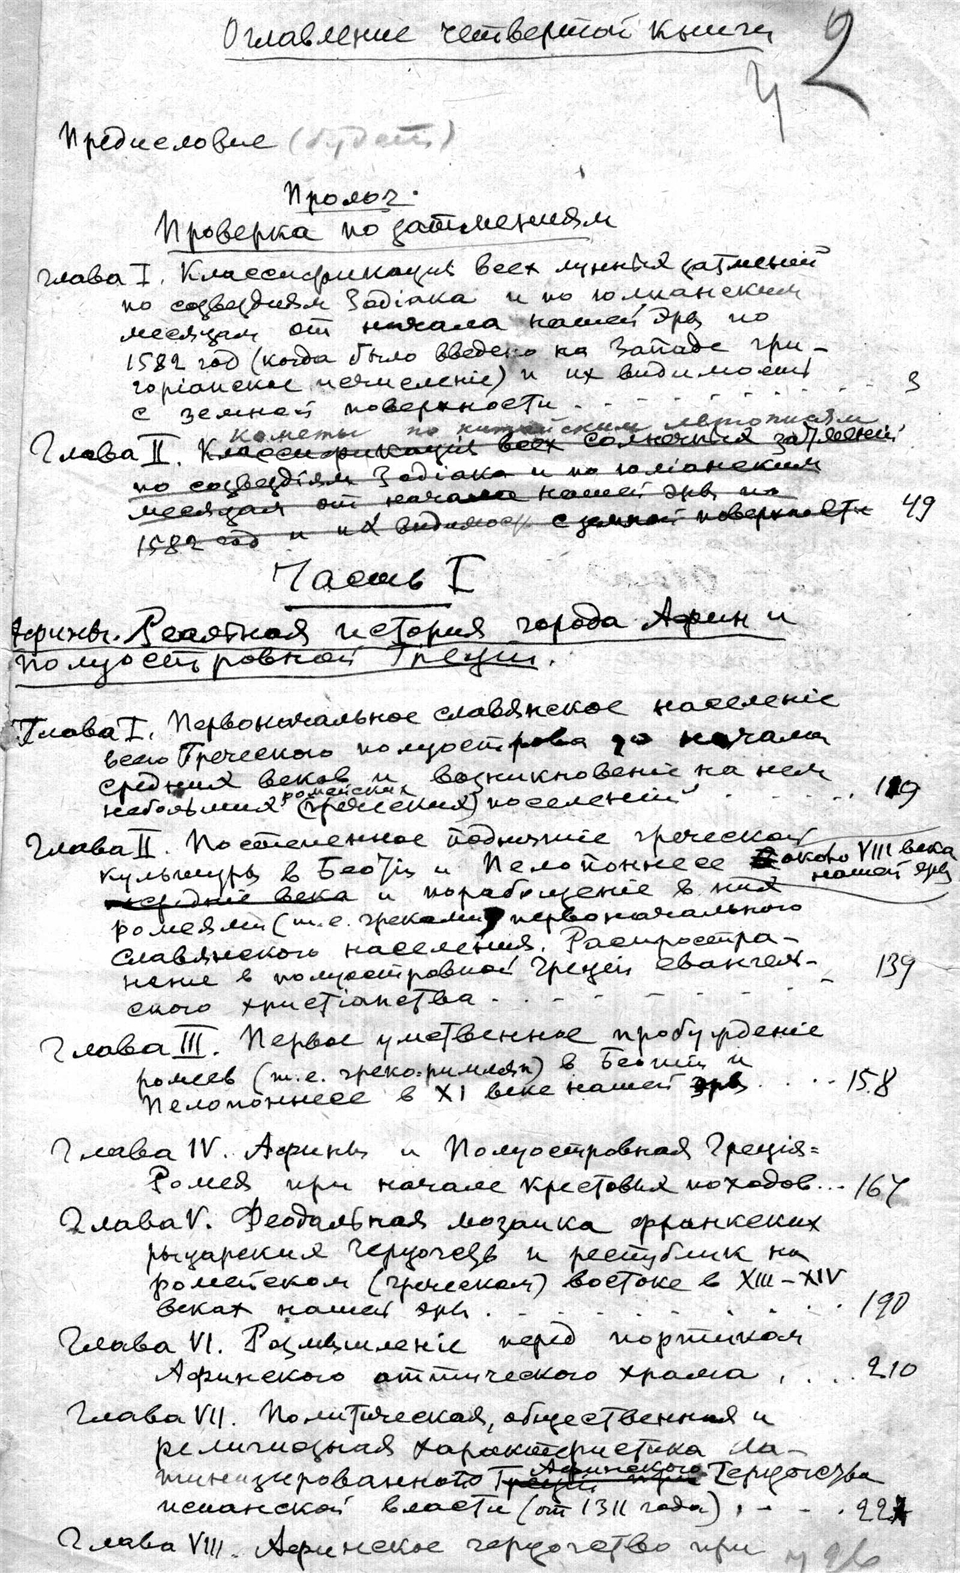 Оглавление четвертой книги
2
Предисловие (будет)
Пролог.
Проверка по затмениям
Глава I. Классификация всех лунных затмений
по созвездиям Зодіака и по юлианским
месяцам от начала нашей эры по
1582 год (когда было введено на Западе гри-
горіанское исчисленіе) и их видимость
с земной поверхности . . . . . . . 3
Кометы по китайским летописям
Глава II. Классификация всех солнечных затмений
по созвездіям Зодіака и по юліанским
месяцам от начала нашей эры по
1582 год и их видимость с земной поверхности 49
Часть I
Афины. Реальная история города Афин и
полуостровной Греции.
Глава I. Первоначальное славянское населеніе
всего Греческого полуострова до начала
средних веков и возникновеніе на нем
ромейских
небольших (греческих) поселений . . . . . 119
Глава II. Постепенное поднятіе греческой
культуры в Беотіи и Пелопоннесе около VIII века
нашей эры
средніе века и порабощеніе в них
ромеями (т.е. греками) первоначального
славянского населения. Распростра-
нение в полуостровной Греции евангель-
ского христіанства . . . . . . . 139
Глава III. Первое умственное пробужденіе
ромеев (т.е. греко-римлян) в Беотии и
Пелопоннесе в XI веке нашей эры . . . . 158
Глава IV. Афины и Полуостровная Греція=
Ромея при начале крестовых походов . . . 167
Глава V. Феодальная мозаика франкских
рыцарских герцогств и республик на
ромейском (греческом) востоке в XIII–XIV
веках нашей эры . . . . . . . . 190
Глава VI. Размышленіе перед портиком
Афинского аттического храма . . . . 210
Глава VII. Политическая, общественная и
религиозная характеристика ла-
Афинского
тинизированного Греции при Герцогства
испанской власти (от 1311 года) . . . . 227
Глава VIII. Афинское герцогство при